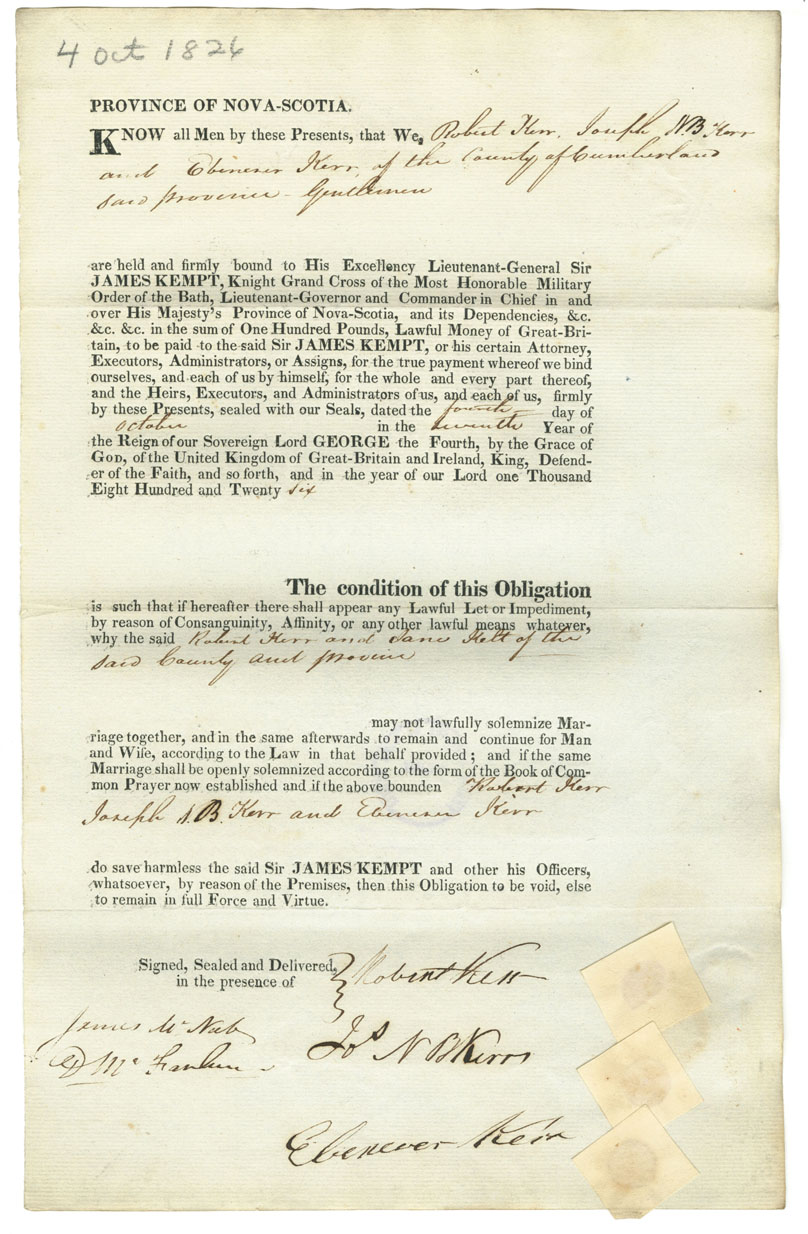 4 Oct 1826
PROVINCE OF NOVA-SCOTIA.
KNOW all Men by these Presents, that We, Robert Kerr, Joseph N.B Kerr
and Ebenezer Kerr, of the County of Cumberland
said province - Gentlemen
are held and firmly bound to His Excellency Lieutenant-General Sir
JAMES KEMPT, Knight Grand Cross of the Most Honorable Military
Order of the Bath, Lieutenant-Governor and Commander in Chief in and
over His Majesty's Province of Nova-Scotia, and its Dependencies, &c.
&c. &c. in the sum of One Hundred Pounds, Lawful Money of Great-Bri-
tain, to be paid to the said Sir JAMES KEMPT, or his certain Attorney,
Executors, Administrators, or Assigns, for the true payment whereof we bind
ourselves, and each of us by himself, for the whole and every part thereof,
and the Heirs, Executors, and Administrators of us, and each of us, firmly
by these Presents, sealed with our Seals, dated the fourth day of
October in the seventh Year of
the Reign of our Sovereign Lord GEORGE the Fourth, by the Grace of
GOD, of the United Kingdom of Great-Britain and Ireland, King, Defend-
er of the Faith, and so forth, and in the year of our Lord one Thousand
Eight Hundred and Twenty six
The condition of this Obligation
is such that if hereafter there shall appear any Lawful Let or Impediment,
by reason of Consanguinity, Affinity, or any other lawful means whatever,
why the said Robert Kerr and Jane of the
said County and province
may not lawfully solemnize Mar-
riage together, and in the same afterwards to remain and continue for Man
and Wife, according to the Law in that behalf provided; and if the same
Marriage shall be openly solemnized according to the form of the Book of Com-
mon Prayer now established and if the above bounden Robert Kerr
Joseph N.B. Kerr and Ebenezer Kerr
do save harmless the said Sir JAMES KEMPT and other his Officers,
whatsoever, by reason of the Premises, then this Obligation to be void, else
to remain in full Force and Virtue.
Signed, Sealed and Delivered,
in the presence of
Robert Kerr
James McNab
Jos N B Kerr
Ebenezer Kerr